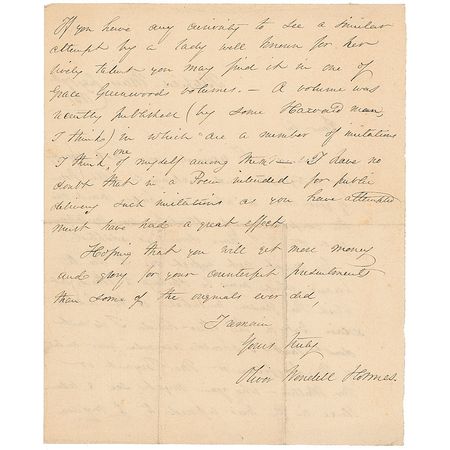 If you have any curiosity to see a similar
attempt by a lady well known for her
lively talent you may find it in one of
Grace Greenwood's volumes. — A volume was
recently published (by some Harvard man,
I think) in which are a number of imitations
I think, one of myself among them — I have no
doubt that in a Poem intended for public
delivery such imitations as you have attempted
must have had a great effect.
Hoping that you will get more money
and glory for your counterfeit presentments
than some of the originals ever did,
I remain
Yours truly
Oliver Wendell Holmes.